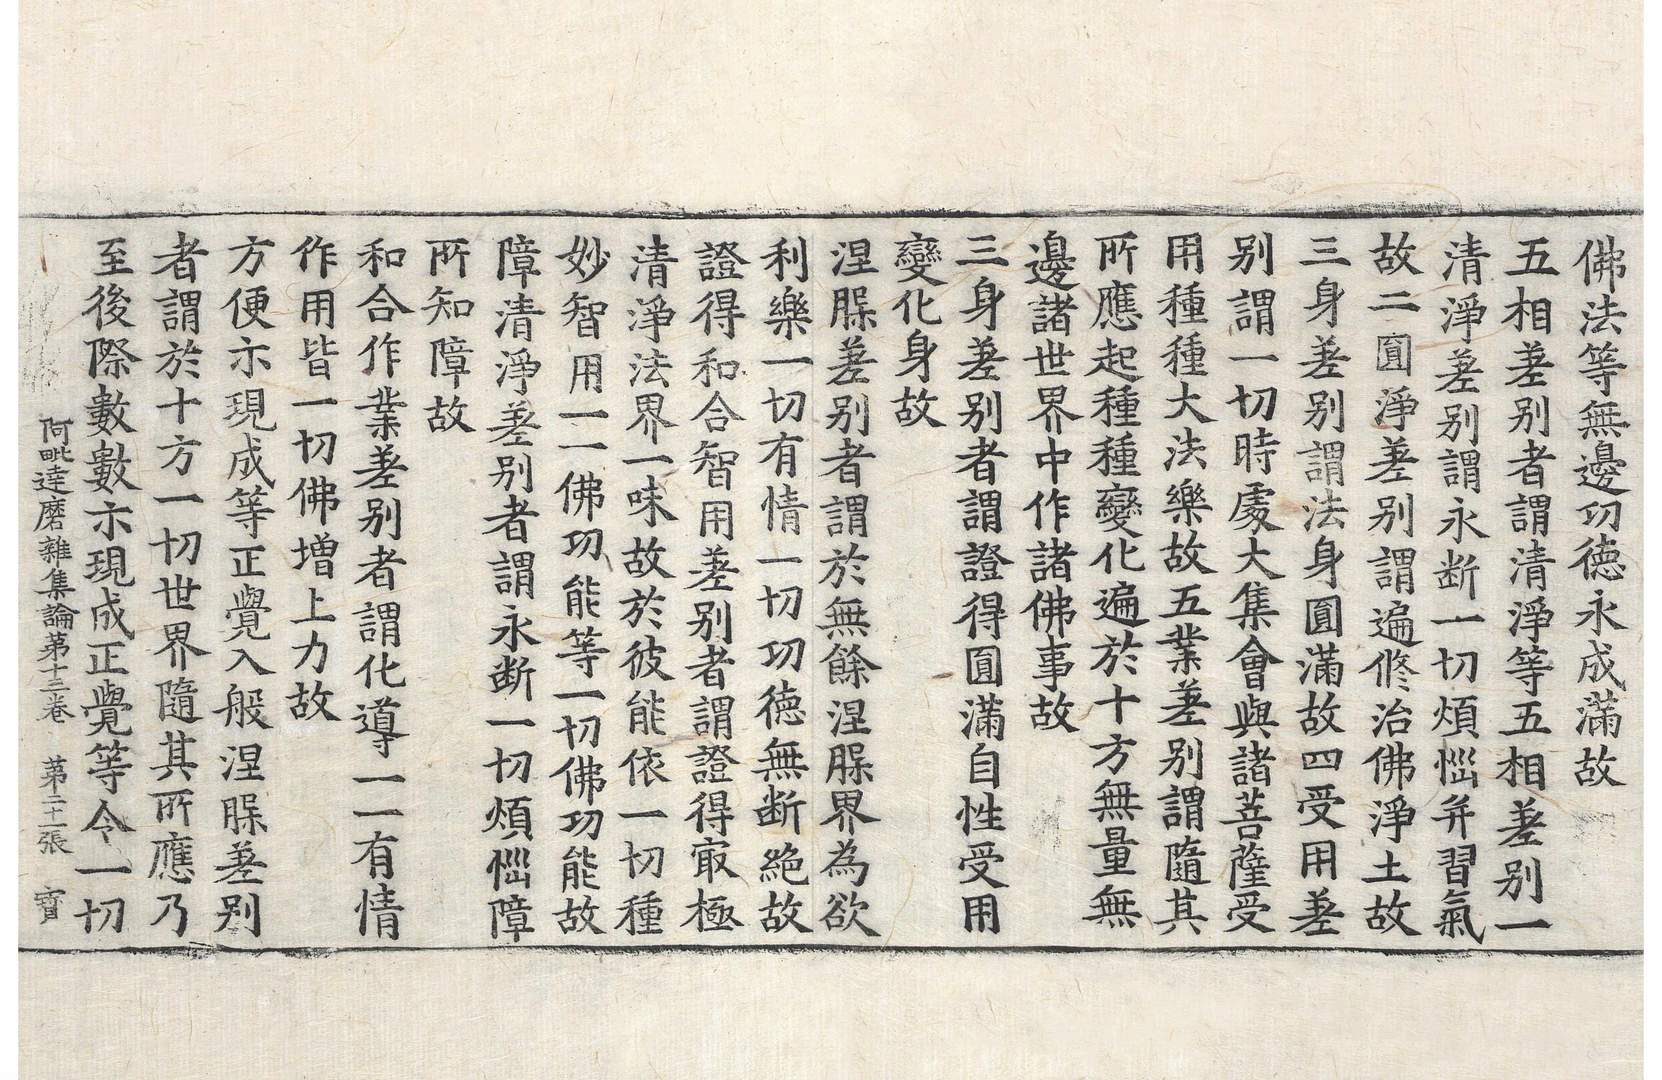 佛法等無邊功德永成滿故
五相差别者謂清淨等五相差别一
清淨差别謂永断一切煩惱并習氣
故二圓淨差别謂遍修治佛淨土故
三身差别謂法身圓滿故四受用差
别謂一切時處大集會與諸菩薩受
用種種大法樂故五業差别謂隨其
所應起種種變化遍於十方無量無
邊諸世界中作諸佛事故
三身差别者謂證得圓滿自性受用
變化身故
涅槃差别者謂於無餘涅槃界為欲
利樂一切有情一切功德無断絶故
證得和合智用差别者謂證得㝡極
清淨法界一味故於彼能依一切種
妙智用一一佛功能等一切佛功能故
障清淨差别者謂永断一切煩惱障
所知障故
和合作業差别者謂化導一一有情
作用皆一切佛增上力故
方便示現成等正覺入般涅槃差别
者謂於十方一切世界隨其所應乃
至後際數數示現成正覺等令一切
阿毗達磨雜集論第十三卷 第二十一張 寶